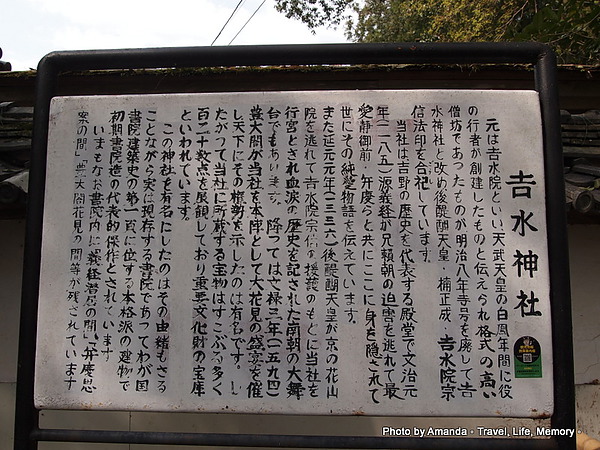 𠮷水神社
元は𠮷水院といい、天武天皇の白鳳年間に役
の行者が創建したものと伝えられ格式の高い
僧坊であったものが明治八年寺号を廃して𠮷
水神社と改め後醍醐天皇・楠正成・𠮷水院宗
信法印を合祀しています。
当社は吉野の歴史を代表する殿堂で文治元
年(一一八五)源義経が兄頼朝の迫害を逃れて最
愛静御前・弁慶らと共にここに身を隠されて
世にその純愛物語を伝えています。
また延元元年(一三三六)後醍醐天皇が京の花山
院を逃れて𠮷水院宗信の援護のもとに当社を
行宮とされ血涙の歴史を記された南朝の大舞
台でもあります。降っては文禄三年(一五九四)
豊太閤が当社を本陣として大花見の盛宴を催
し天下にその権勢を示したのは有名です。し
たがって当社に所蔵する宝物はすこぶる多く
百二十数点を展観しており重要文化財の宝庫
といわれています。
この神社を有名にしたのはその由緒もさる
ことながら実は現存する書院であってわが国
書院建築史の第一頁に位する本格派の建物で
初期書院造の代表的傑作とされています。
いまもなお書院内に「義経潜居の間」「弁慶思
案の間」「豊太閤花見の間」等が残されています
Photo by Amanda・Travel, Life, Memory・